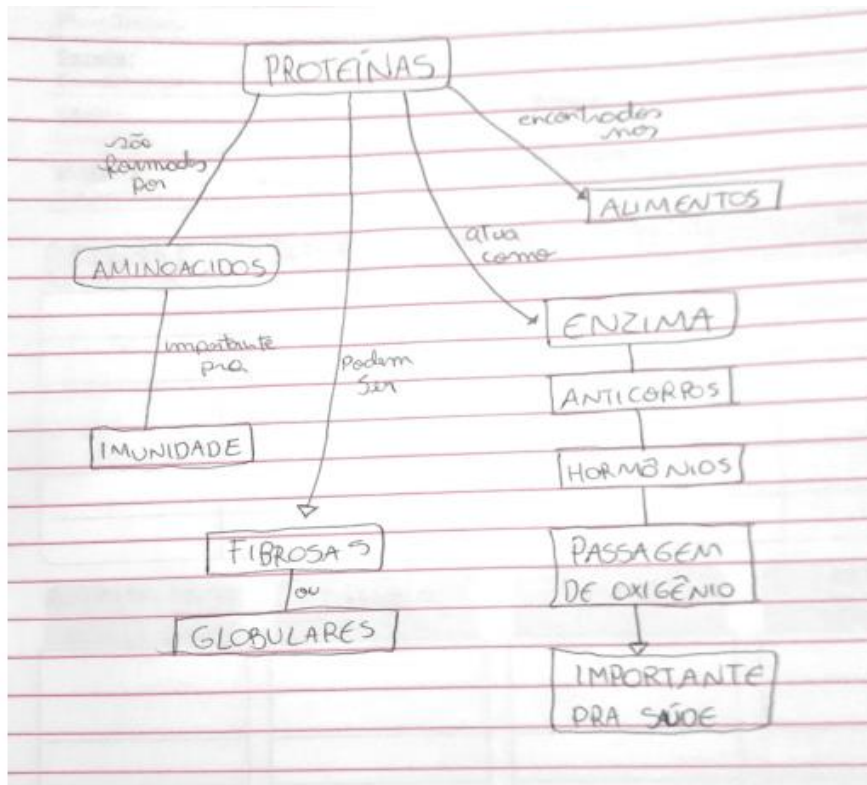 PROTEÍNAS
são
formados
por
encontrados
nos
ALIMENTOS
atua
como
AMINOACIDOS
ENZIMA
importante
pra
Podem
Ser
ANTICORPOS
IMUNIDADE
HORMÔNIOS
FIBROSAS
ou
GLOBULARES
PASSAGEM
DE OXIGÊNIO
IMPORTANTE
PRA SAÚDE